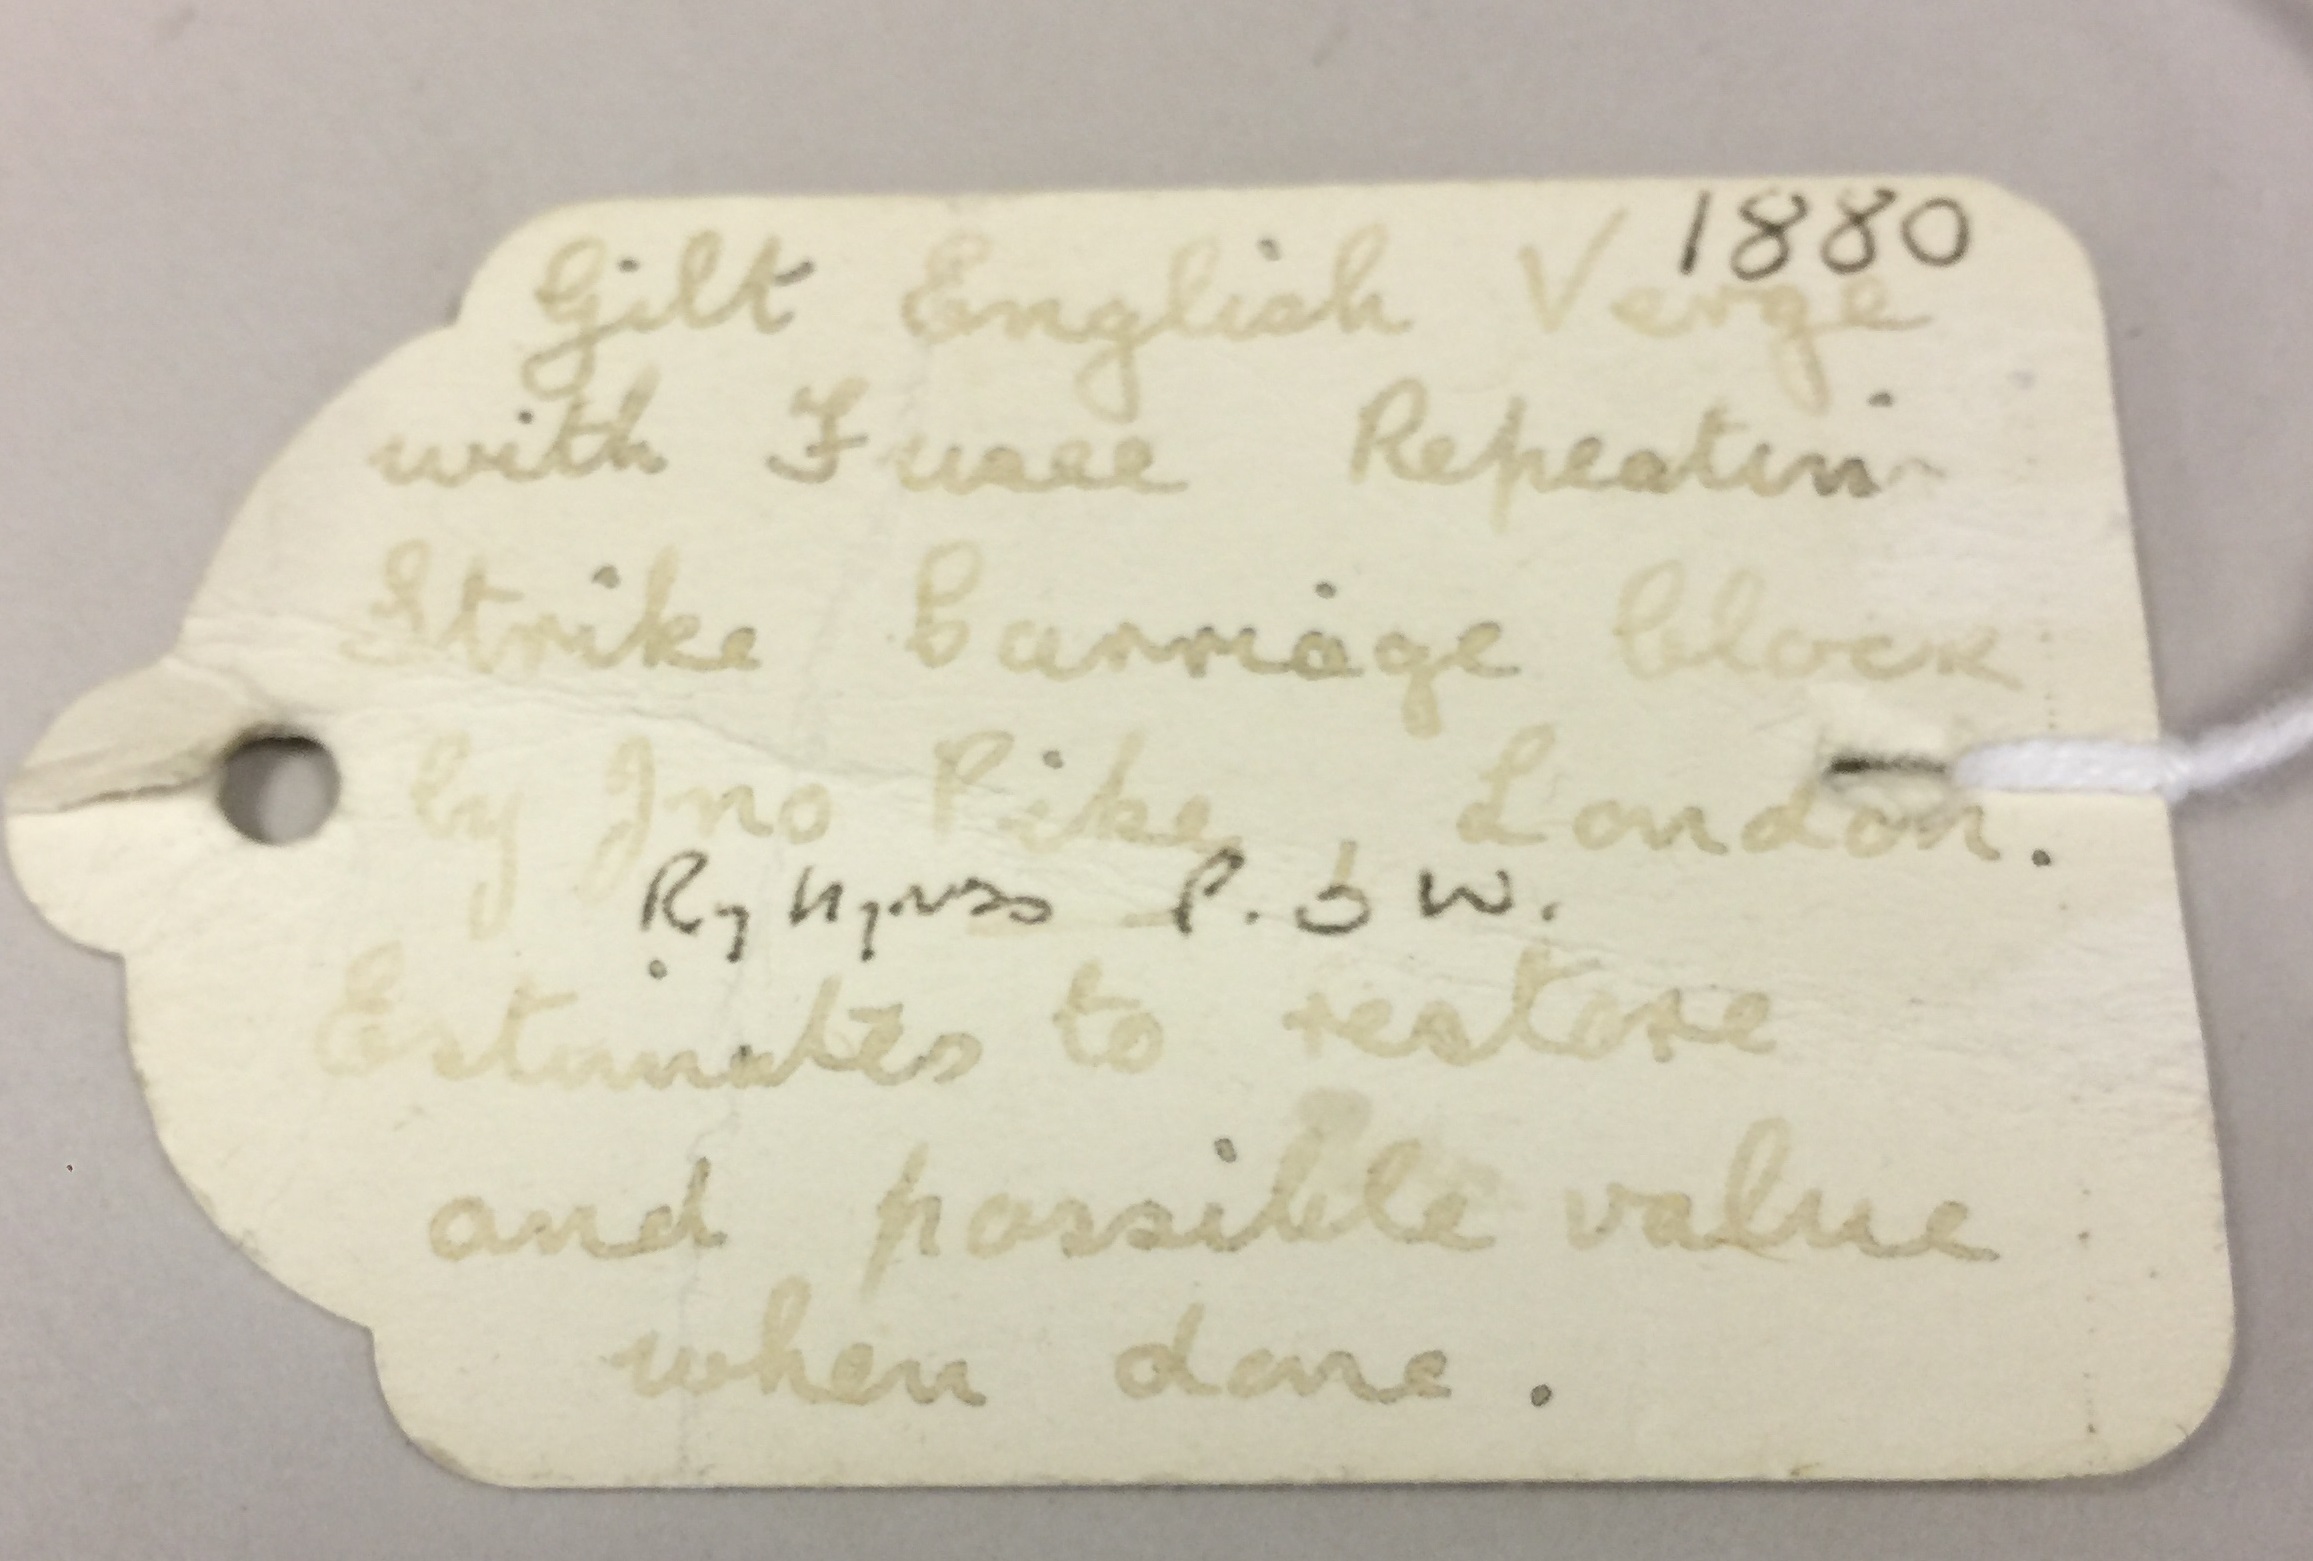 1880
Gilt English Verge
with Fusee Repeatin
Strike Carriage Clock
by Jno Pike, London.
P. & W.
Estimates to restore
and possible value
when done.